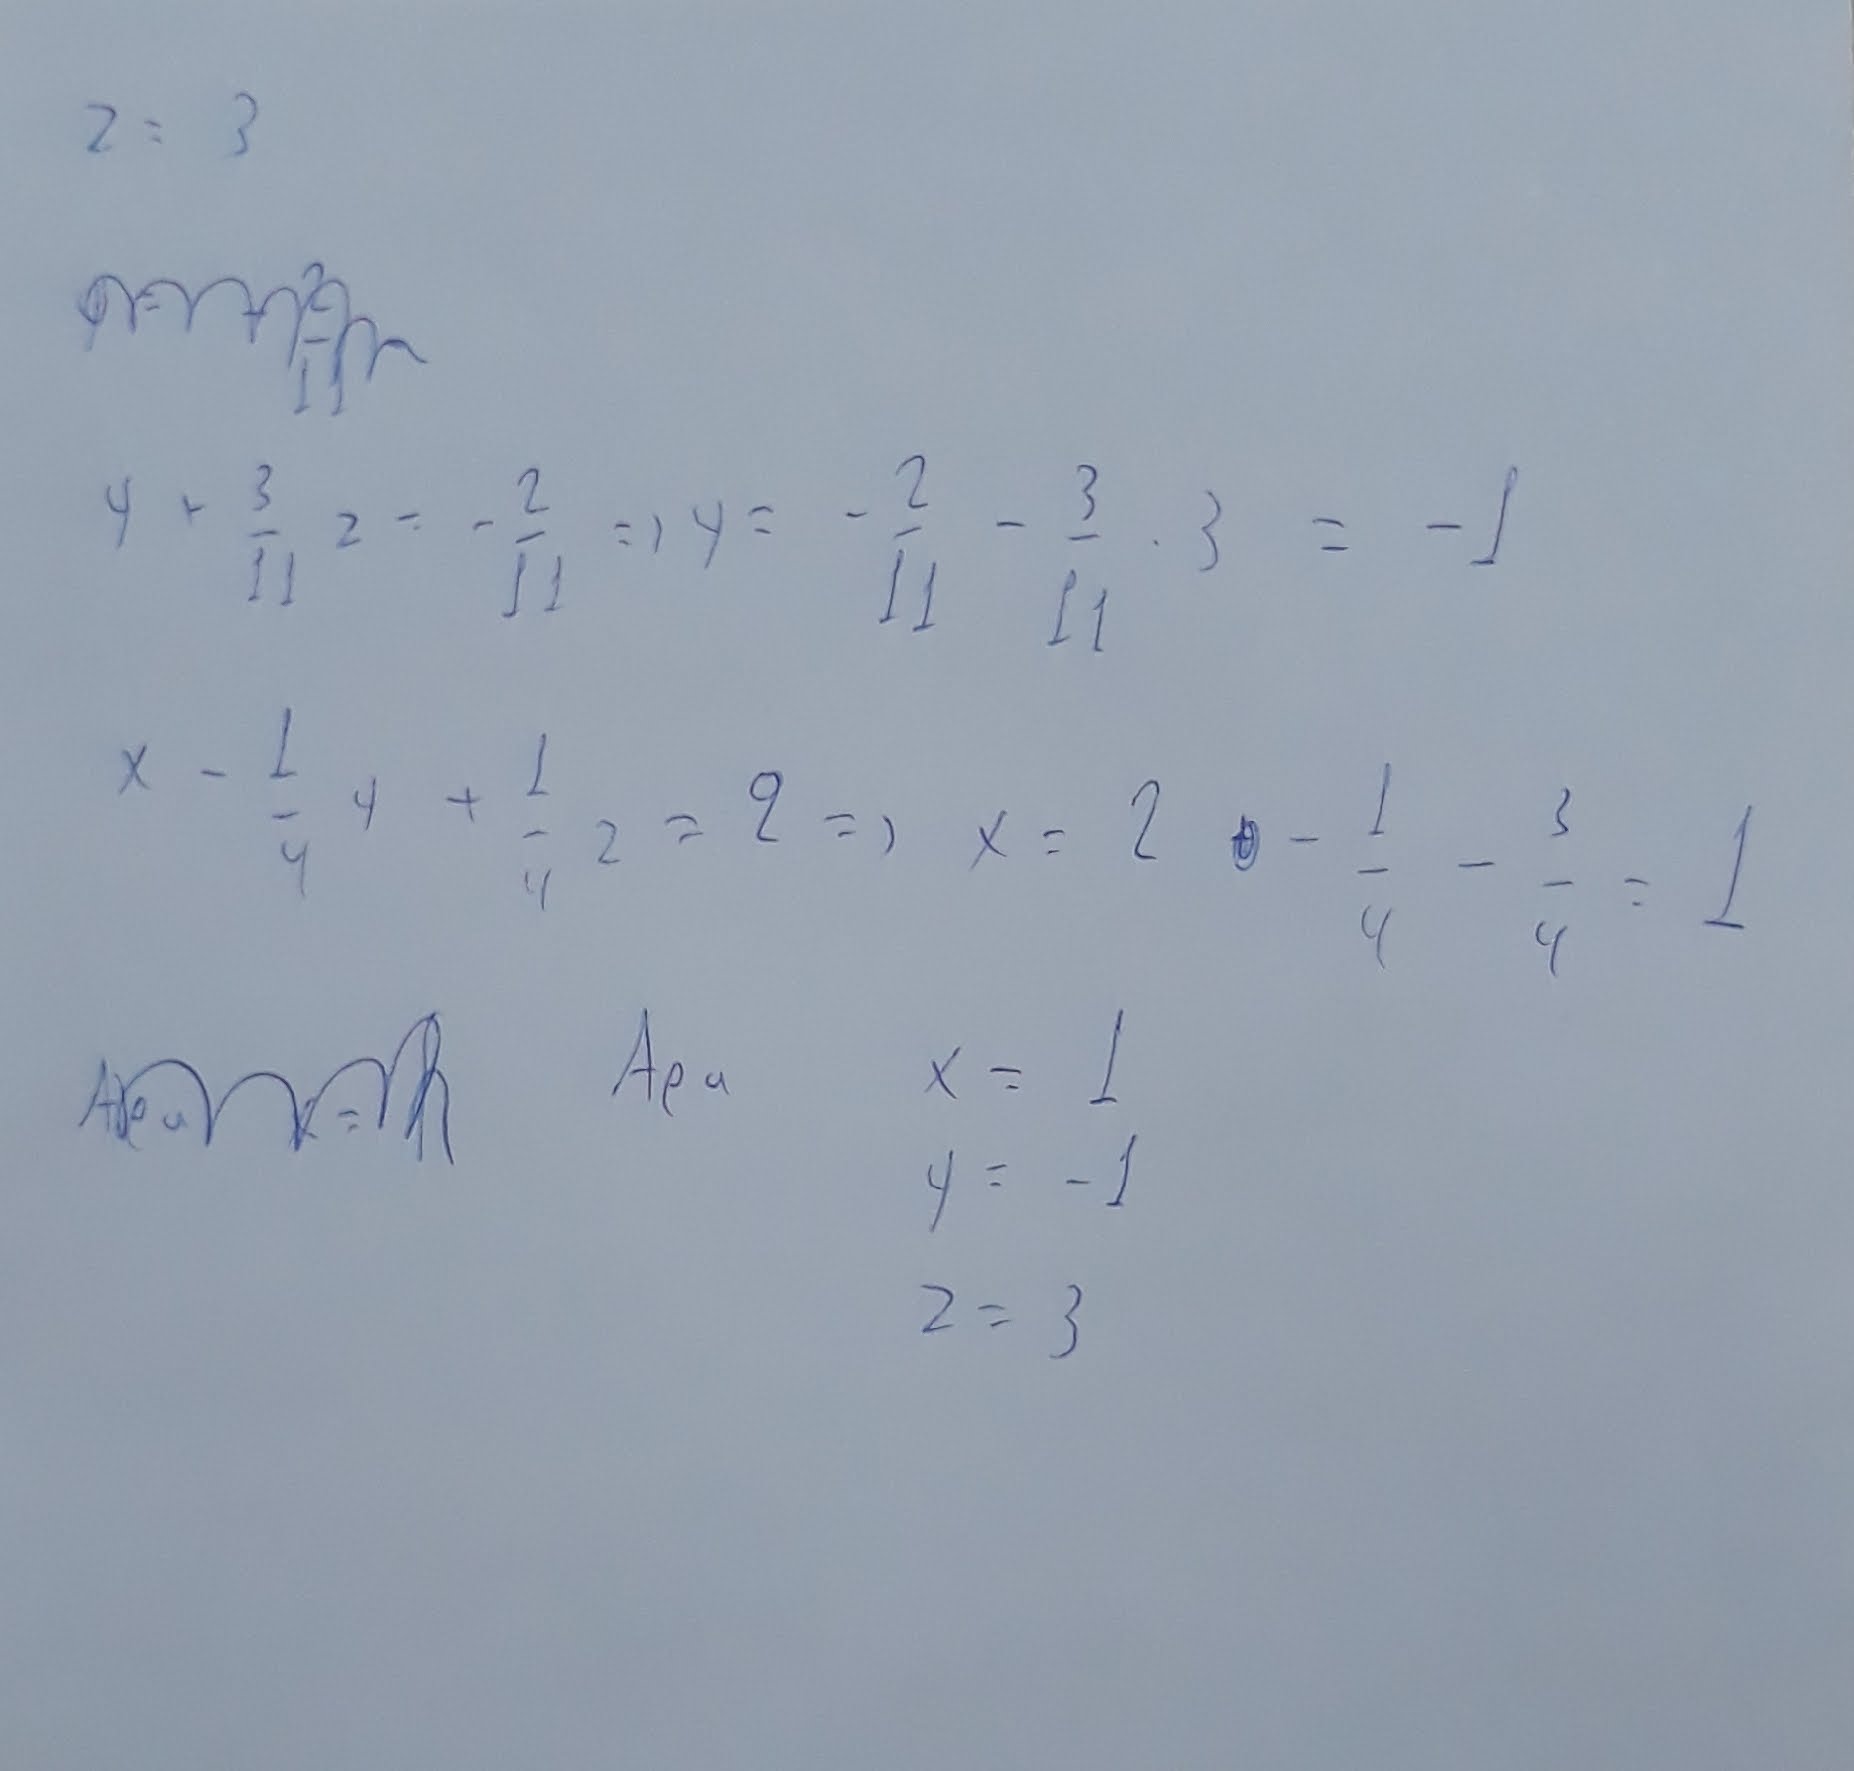 z = 3
y + 3/11 z = - 2/11 => y = - 2/11 - 3/11 · 3 = -1
x - 1/4 y + 1/4 z = 2 => x = 2 - 1/4 - 3/4 = 1
Αρα x = 1
y = -1
z = 3